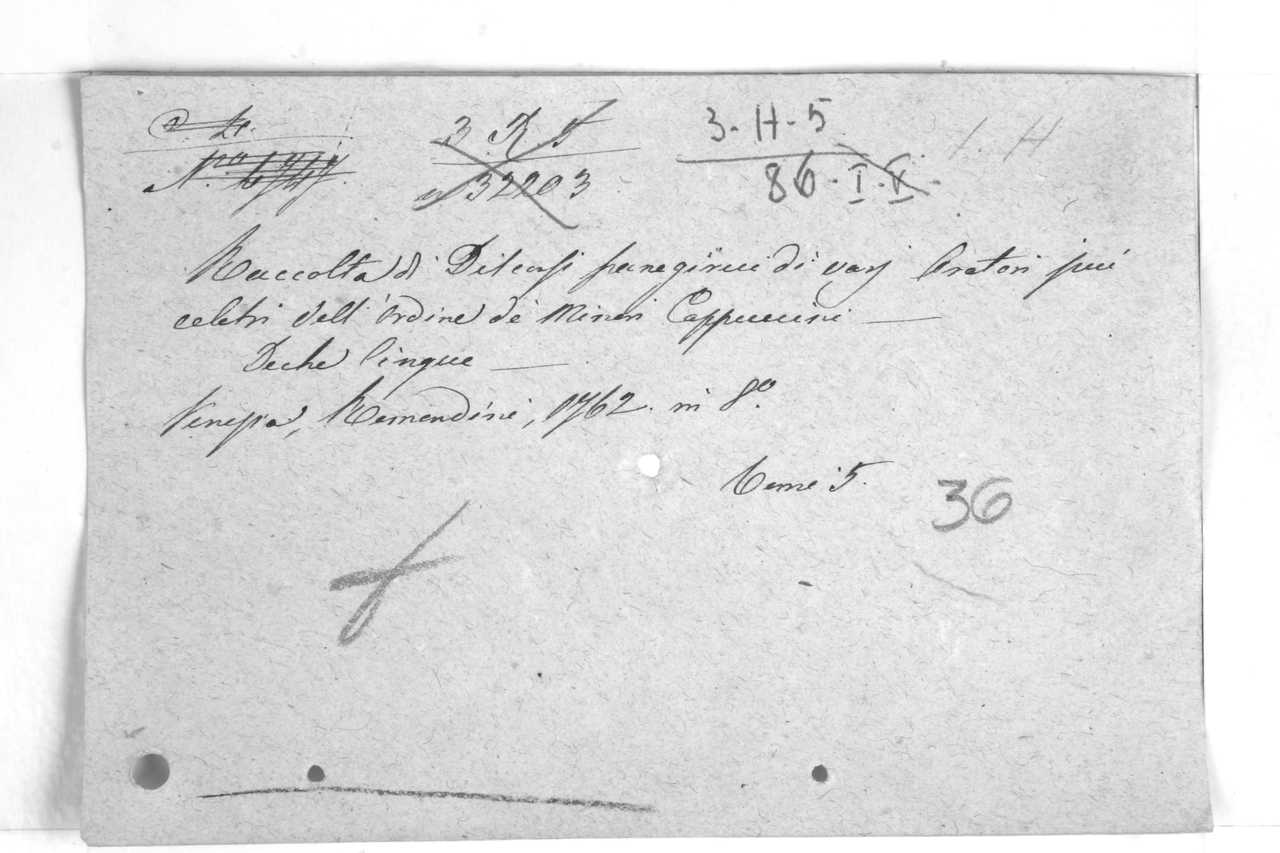 3. R 5 3-H-5 1. H
32203 86-I-V-
Raccolta di Discorsi panegirici di varj Oratori più
celebri dell'Ordine de Minori Cappuccini —
Deche Cinque —
Venezia, Remondini, 1762. in 8º.
Tomi 5. 36